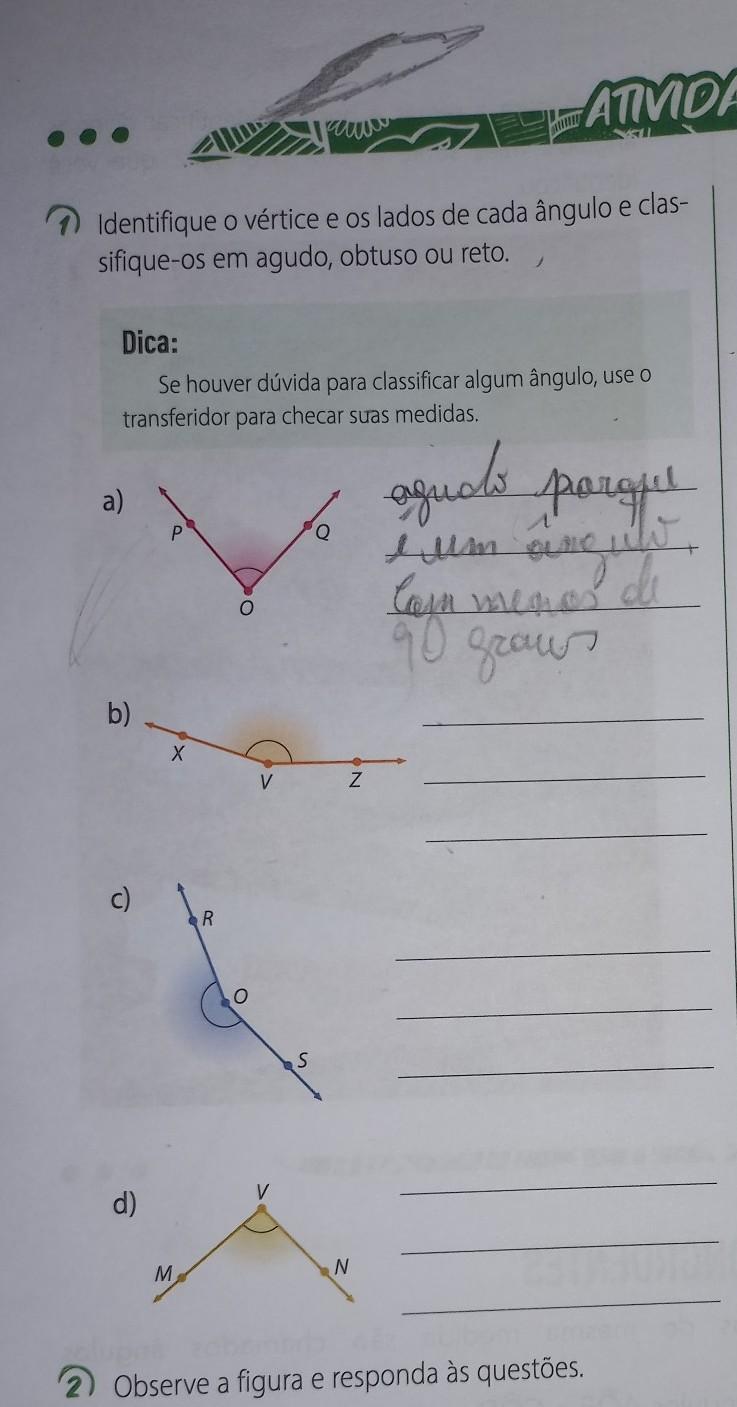 ATIVIDA
1 Identifique o vértice e os lados de cada ângulo e clas-
sifique-os em agudo, obtuso ou reto.
Dica:
Se houver dúvida para classificar algum ângulo, use o
transferidor para checar suas medidas.
a)
P
Q
O
agudo porque
é um ângulo
com menos de
90 graus
b)
X
V
Z
c)
R
O
S
d)
V
M
N
2 Observe a figura e responda às questões.